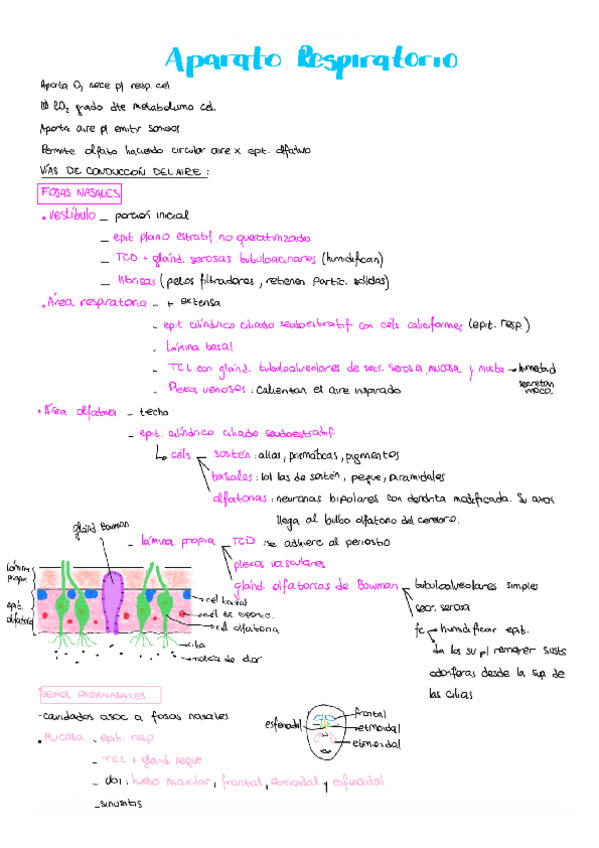 Aparato Respiratorio
Aporta O₂ nece p/ resp. cel
CO₂ grado dte metabolismo cel.
Aporta aire p/ emitir sonidos
Permite olfato haciendo circular aire x epit. olfativo
VÍAS DE CONDUCCIÓN DEL AIRE:
FOSAS NASALES
• Vestíbulo – porción inicial
– epit plano estratif no queratinizado
– TCD + gland. serosas tubuloacinares (humidifican)
– Vibrisas (pelos filtradores, retienen partíc. sólidas)
• Área respiratoria – + extensa
– epit cilíndrico ciliado seudoestratif con céls caliciformes (epit. resp.)
– Lámina basal
– TCL con gland. tubuloalveolares de secr. serosa, mucosa y mixta → humedad
secretan moco.
– Plexos venosos: calientan el aire inspirado
• Área olfativa – techo
– epit. cilíndrico ciliado seudoestratif
↳ céls
sostén: altas, prismáticas, pigmentos
basales: las de sostén, peque, piramidales
olfatorias: neuronas bipolares con dendrita modificada. Su axon
llega al bulbo olfatorio del cerebro.
– Lámina propia
TCD: se adhiere al periostio
plexos vasculares
gland olfatorias de Bowman
tubuloalveolares simples
secr. serosa
fc
humidificar epit.
da los su p/ remover susts
odoríferas desde la sup de
las cilias
gland Bowman
lámina propia
epit. olfatorio
cél basal
cél de soporte.
cél olfatoria
cilia
molécula de olor
SENOS PARANASALES
· cavidades asoc a fosas nasales
• Mucosa – epit. resp.
– TCL + gland peque
– dbj: hueso maxilar, frontal, etmoidal y esfenoidal
– sinusitis
esfenoidal
frontal
etmoidal
etmoidal